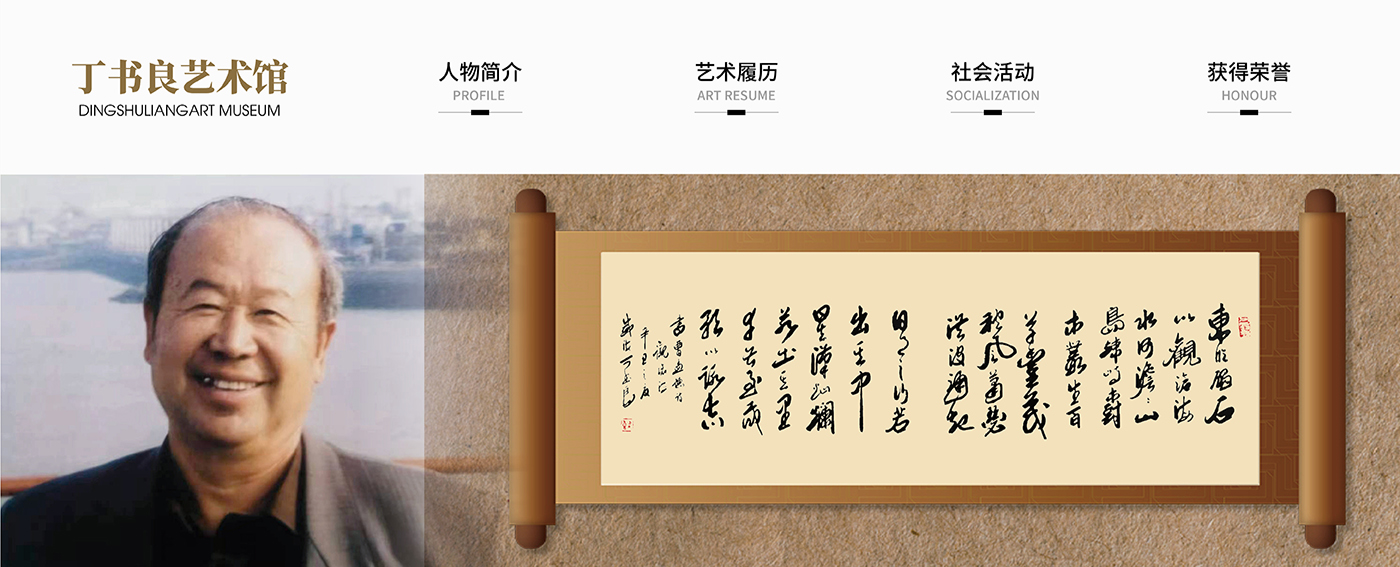 丁书良艺术馆
DINGSHULIANGART MUSEUM
人物简介
PROFILE
艺术履历
ART RESUME
社会活动
SOCIALIZATION
获得荣誉
HONOUR
東臨碣石
以觀滄海
水何澹澹山
島竦峙樹
木叢生百
草豐茂
秋風蕭瑟
洪波涌起
日月之行若
出其中
星漢燦爛
若出其里
幸甚至哉
歌以詠志
書曹孟德詩
觀滄海